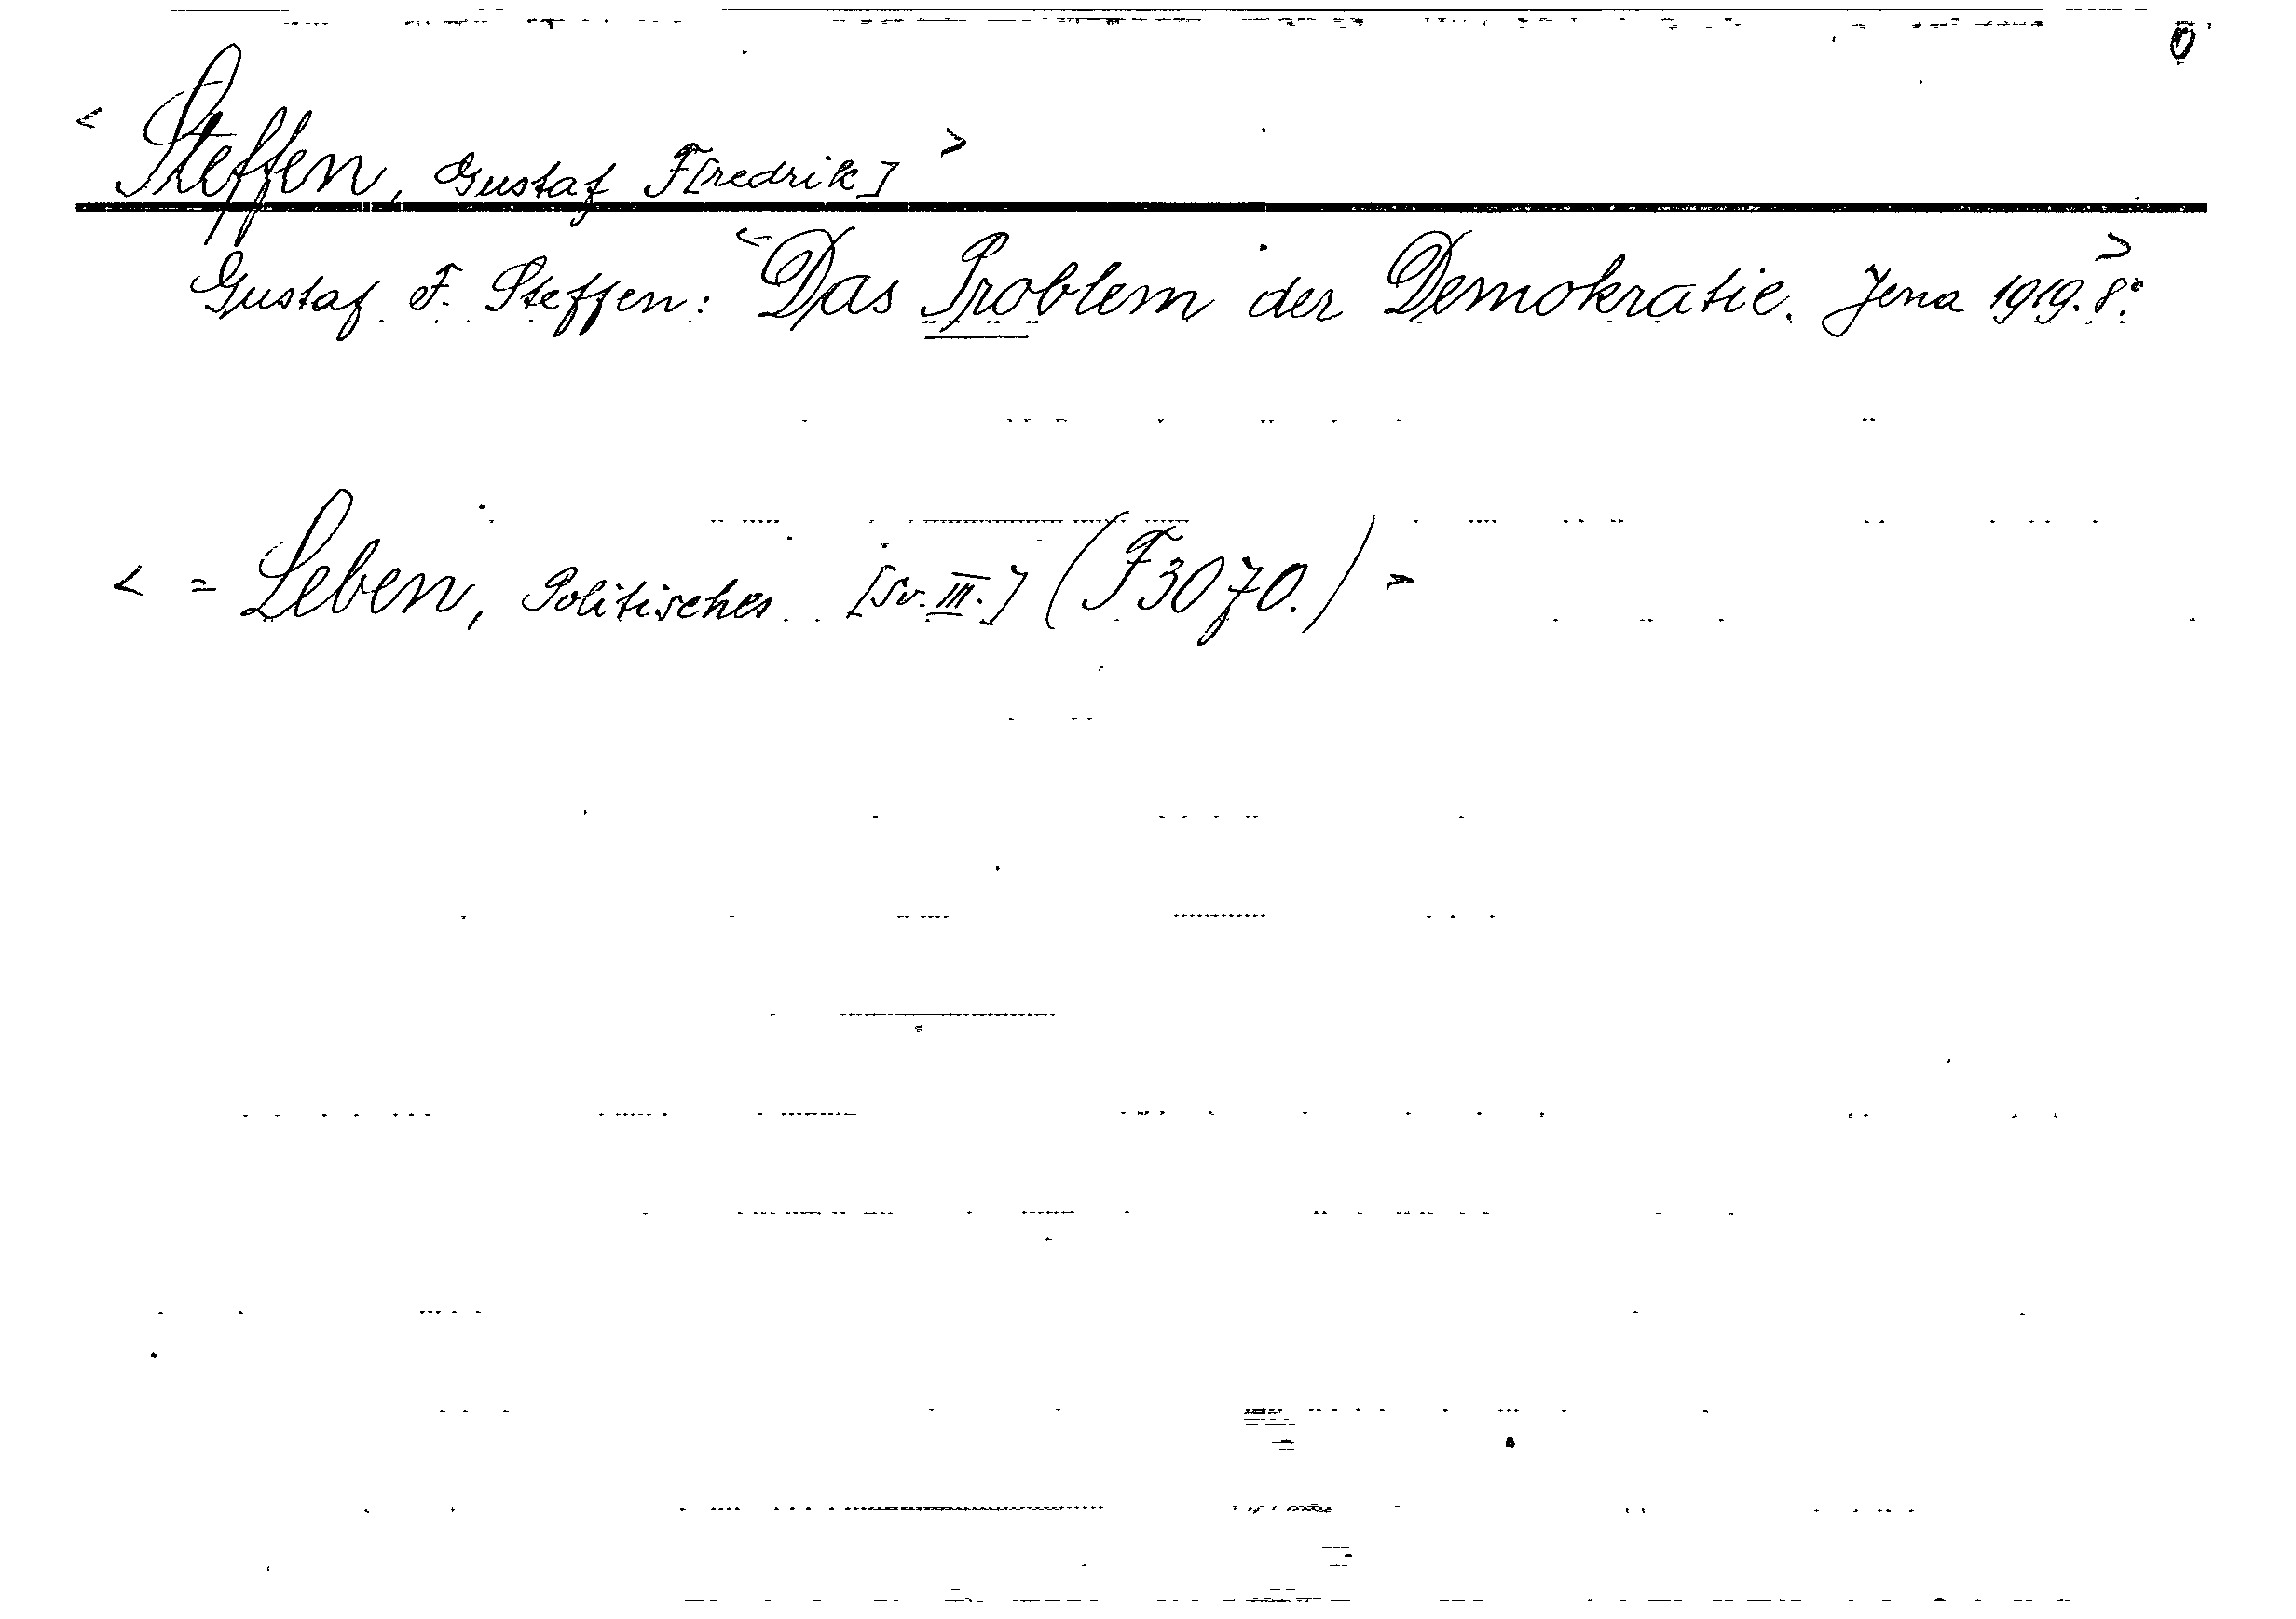 0
< Steffen, Gustaf F[redrik] >
Gustaf F. Steffen: < Das Problem der Demokratie. Jena 1919. 8°. >
< = Leben, Politisches [Sv. III.] (F3070.) >